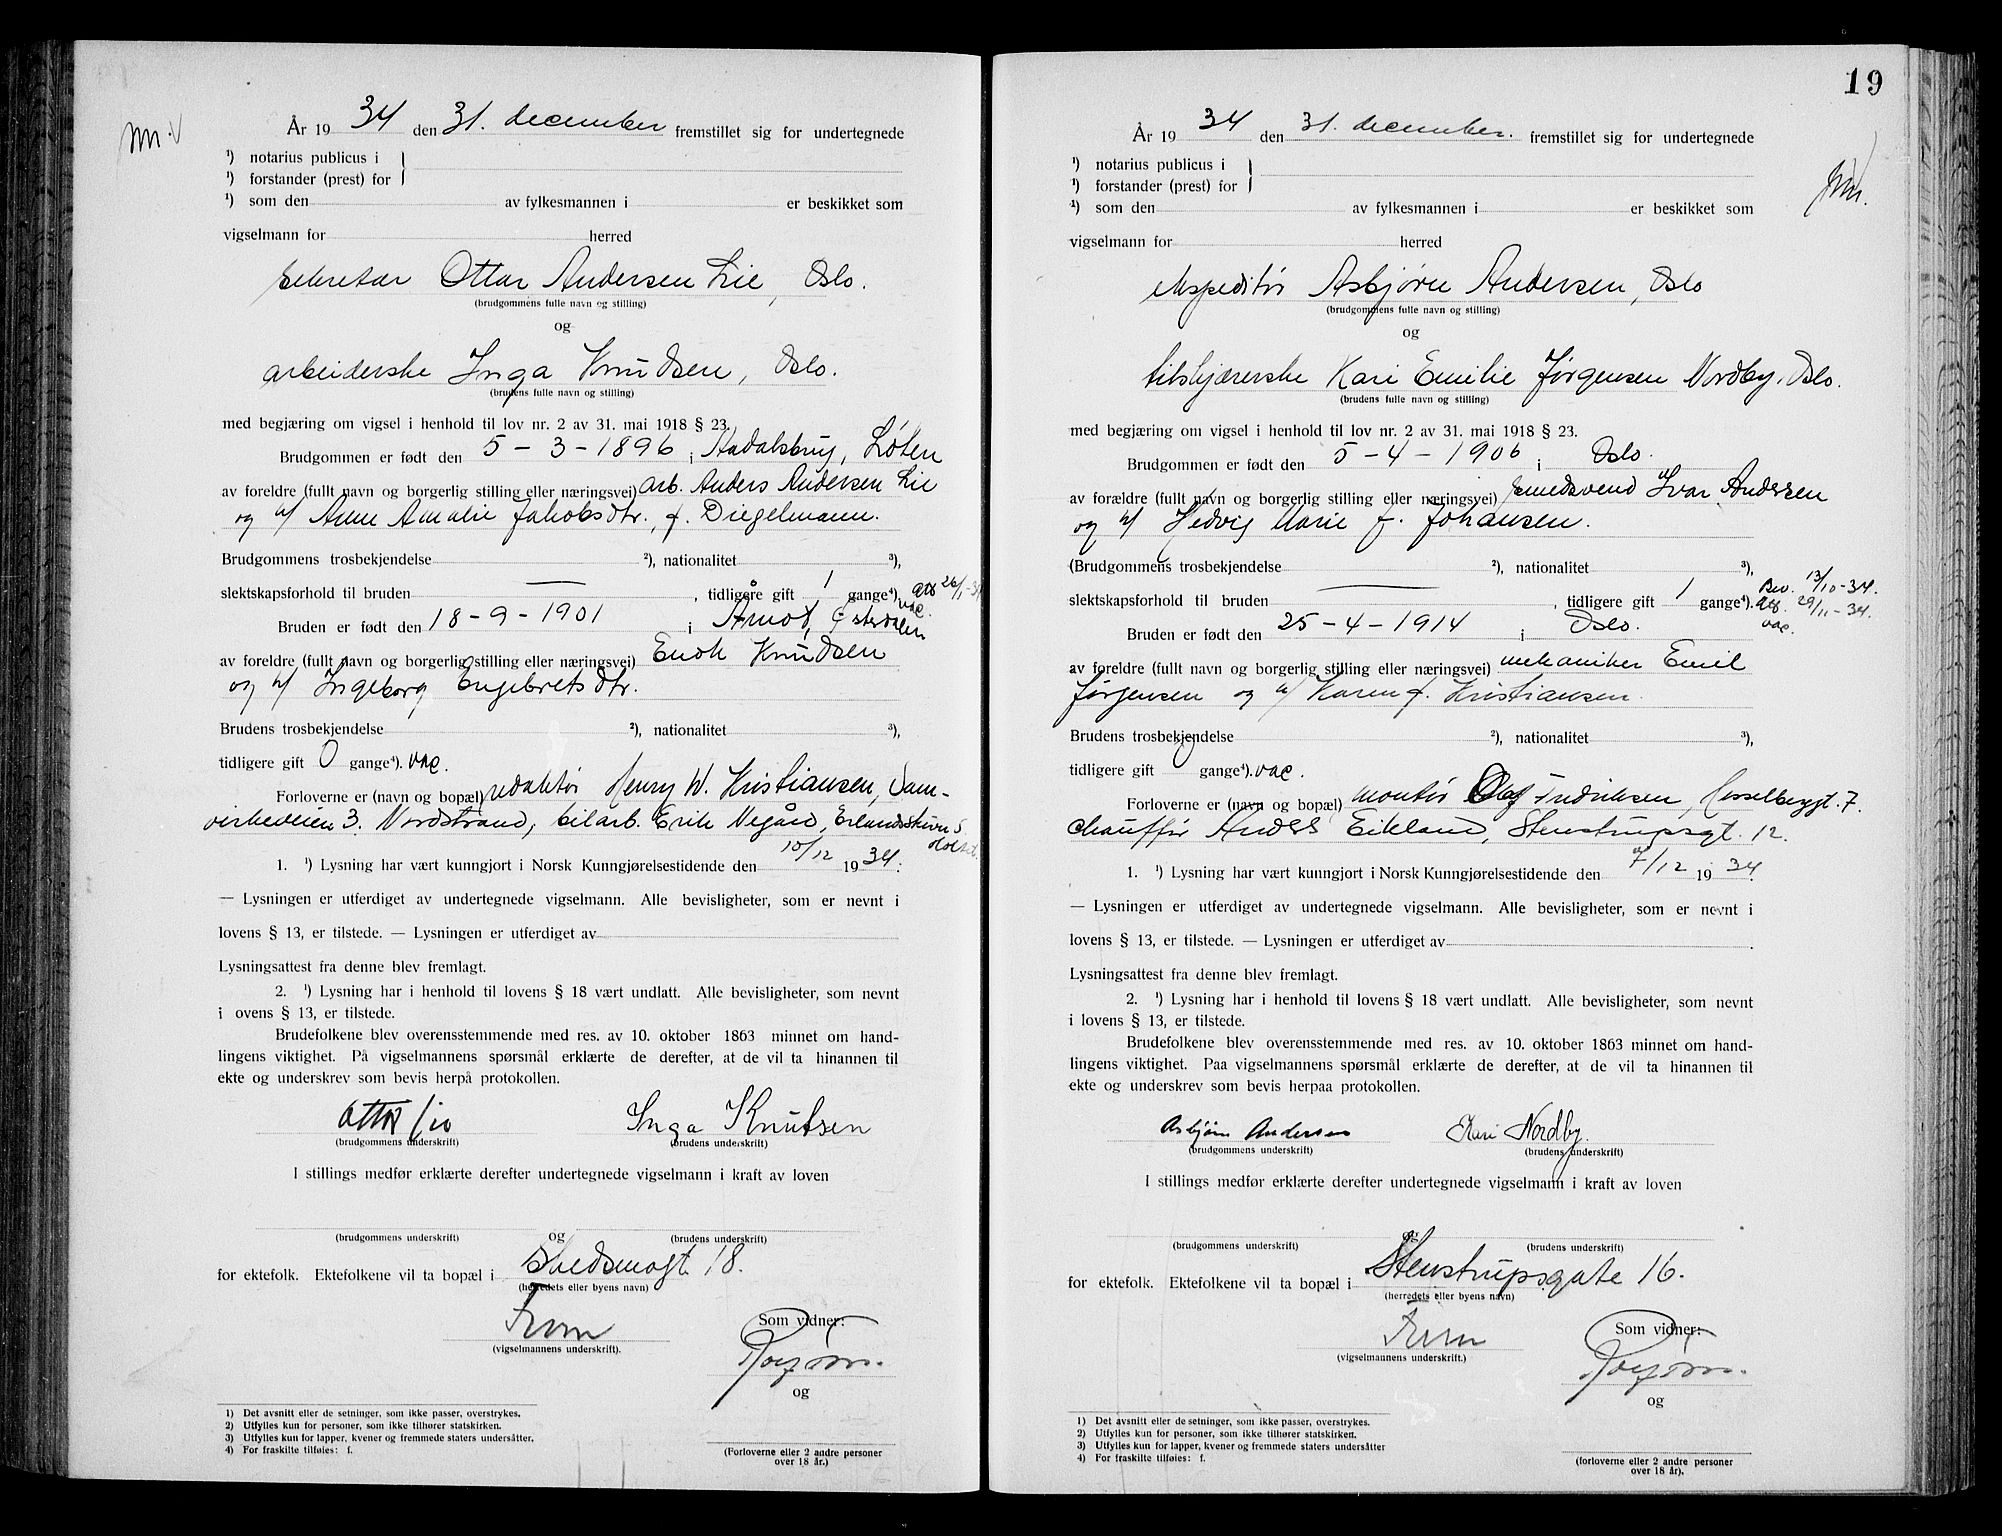 År 19 34 den 31. december fremstillet sig for undertegnede
¹) notarius publicus i
¹) forstander (prest) for
¹) som den av fylkesmannen i er beskikket som
vigselmann for herred
sekretær Ottar Andersen Lie, Oslo.
(brudgommens fulle navn og stilling)
og
arbeiderske Inga Knudsen, Oslo.
(brudens fulle navn og stilling)
med begjæring om vigsel i henhold til lov nr. 2 av 31. mai 1918 § 23.
Brudgommen er født den 5 - 3 - 1896 i Aadalsbrug, Løten
av foreldre (fullt navn og borgerlig stilling eller næringsvei) arb. Anders Andersen Lie
og h/ Anne Amalie Jakobsdtr., f. Diegelmann.
Brudgommens trosbekjendelse ²), nationalitet ³),
slektskapsforhold til bruden — , tidligere gift 1 gange⁴). 26/1-34
vac.
Bruden er født den 18 - 9 - 1901 i Åmot, Østerdalen
av foreldre (fullt navn og borgerlig stilling eller næringsvei) Enok Knudsen
og h/ Ingeborg Engebretsdtr.
Brudens trosbekjendelse ²), nationalitet ³),
tidligere gift 0 gange⁴). vac.
Forloverne er (navn og bopæl) redaktør Henry W. Kristiansen, Sam-
virkeveien 3. Nordstrand, bilarb. Erik Vegård, 5.
1. ¹) Lysning har vært kunngjort i Norsk Kunngjørelsestidende den 10/12 19 34.
— Lysningen er utferdiget av undertegnede vigselmann. Alle bevisligheter, som er nevnt i
lovens § 13, er tilstede. — Lysningen er utferdiget av
Lysningsattest fra denne blev fremlagt.
2. ¹) Lysning har i henhold til lovens § 18 vært undlatt. Alle bevisligheter, som nevnt
i ovens § 13, er tilstede.
Brudefolkene blev overensstemmende med res. av 10. oktober 1863 minnet om hand-
lingens viktighet. På vigselmannens spørsmål erklærte de derefter, at de vil ta hinannen til
ekte og underskrev som bevis herpå protokollen.
Ottar Lie Inga Knutsen
(brudgommens underskrift) (brudens underskrift)
I stillings medfør erklærte derefter undertegnede vigselmann i kraft av loven
og
(brudgommens underskrift) (brudens underskrift)
for ektefolk. Ektefolkene vil ta bopæl i Skedsmogt. 18.
(herredets eller byens navn)
Som vidner:
(vigselmannens underskrift).
og
1) Det avsnitt eller de setninger, som ikke passer, overstrykes.
2) Utfylles kun for personer, som ikke tilhører statskirken.
3) Utfylles kun for lapper, kvener og fremmede staters undersåtter.
4) For fraskilte tilføies: f.
(Forloverne eller 2 andre personer
over 18 år.)
19
År 19 34 den 31. december. fremstillet sig for undertegnede
¹) notarius publicus i
¹) forstander (prest) for
¹) som den av fylkesmannen i er beskikket som
vigselmann for herred
ekspeditør Asbjørn Andersen, Oslo
(brudgommens fulle navn og stilling)
og
tilskjærerske Kari Emilie Jørgensen Nordby, Oslo.
(brudens fulle navn og stilling)
med begjæring om vigsel i henhold til lov nr. 2 av 31. mai 1918 § 23.
Brudgommen er født den 5 - 4 - 1906 i Oslo.
av forældre (fullt navn og borgerlig stilling eller næringsvei) smedsvend Ivar Andersen
og h/ Hedvig Marie f. Johansen.
(Brudgommens trosbekjendelse ²), nationalitet ³),
slektskapsforhold til bruden — , tidligere gift 1 gange⁴). Bev. 13/10-34.
29/11-34.
vac.
Bruden er født den 25 - 4 - 1914 i Oslo.
av foreldre (fullt navn og borgerlig stilling eller næringsvei) mekaniker Emil
Jørgensen og h/ Karen f. Kristiansen.
Brudens trosbekjendelse ²), nationalitet ³),
tidligere gift 0 gange⁴). vac.
Forloverne er (navn og bopæl) montør Olaf Fredriksen, Hesselberggt. 7
chauffør Anders Eikeland, Stenstrupsgt. 12.
1. ¹) Lysning har vært kunngjort i Norsk Kunngjørelsestidende den 7/12 19 34.
— Lysningen er utferdiget av undertegnede vigselmann. Alle bevisligheter, som er nevnt i
lovens § 13, er tilstede. — Lysningen er utferdiget av
Lysningsattest fra denne blev fremlagt.
2. ¹) Lysning har i henhold til lovens § 18 vært undlatt. Alle bevisligheter, som nevnt
i lovens § 13, er tilstede.
Brudefolkene blev overensstemmende med res. av 10. oktober 1863 minnet om hand-
lingens viktighet. Paa vigselmannens spørsmål erklærte de derefter, at de vil ta hinannen til
ekte og underskrev som bevis herpaa protokollen.
Asbjørn Andersen Kari Nordby.
(brudgommens underskrift) (brudens underskrift)
I stillings medfør erklærte derefter undertegnede vigselmann i kraft av loven
og
(brudgommens underskrift) (brudens underskrift)
for ektefolk. Ektefolkene vil ta bopæl i Stenstrupsgate 16.
(herredets eller byens navn)
Som vidner:
(vigselmannens underskrift.)
og
1) Det avsnitt eller de setninger, som ikke passer, overstrykes.
2) Utfylles kun for personer, som ikke tilhører statskirken.
3) Utfylles kun for lapper, kvener og fremmede staters undersåtter
4) For fraskilte tilføies: f.
(forloverne eller 2 andre personer
over 18 år).